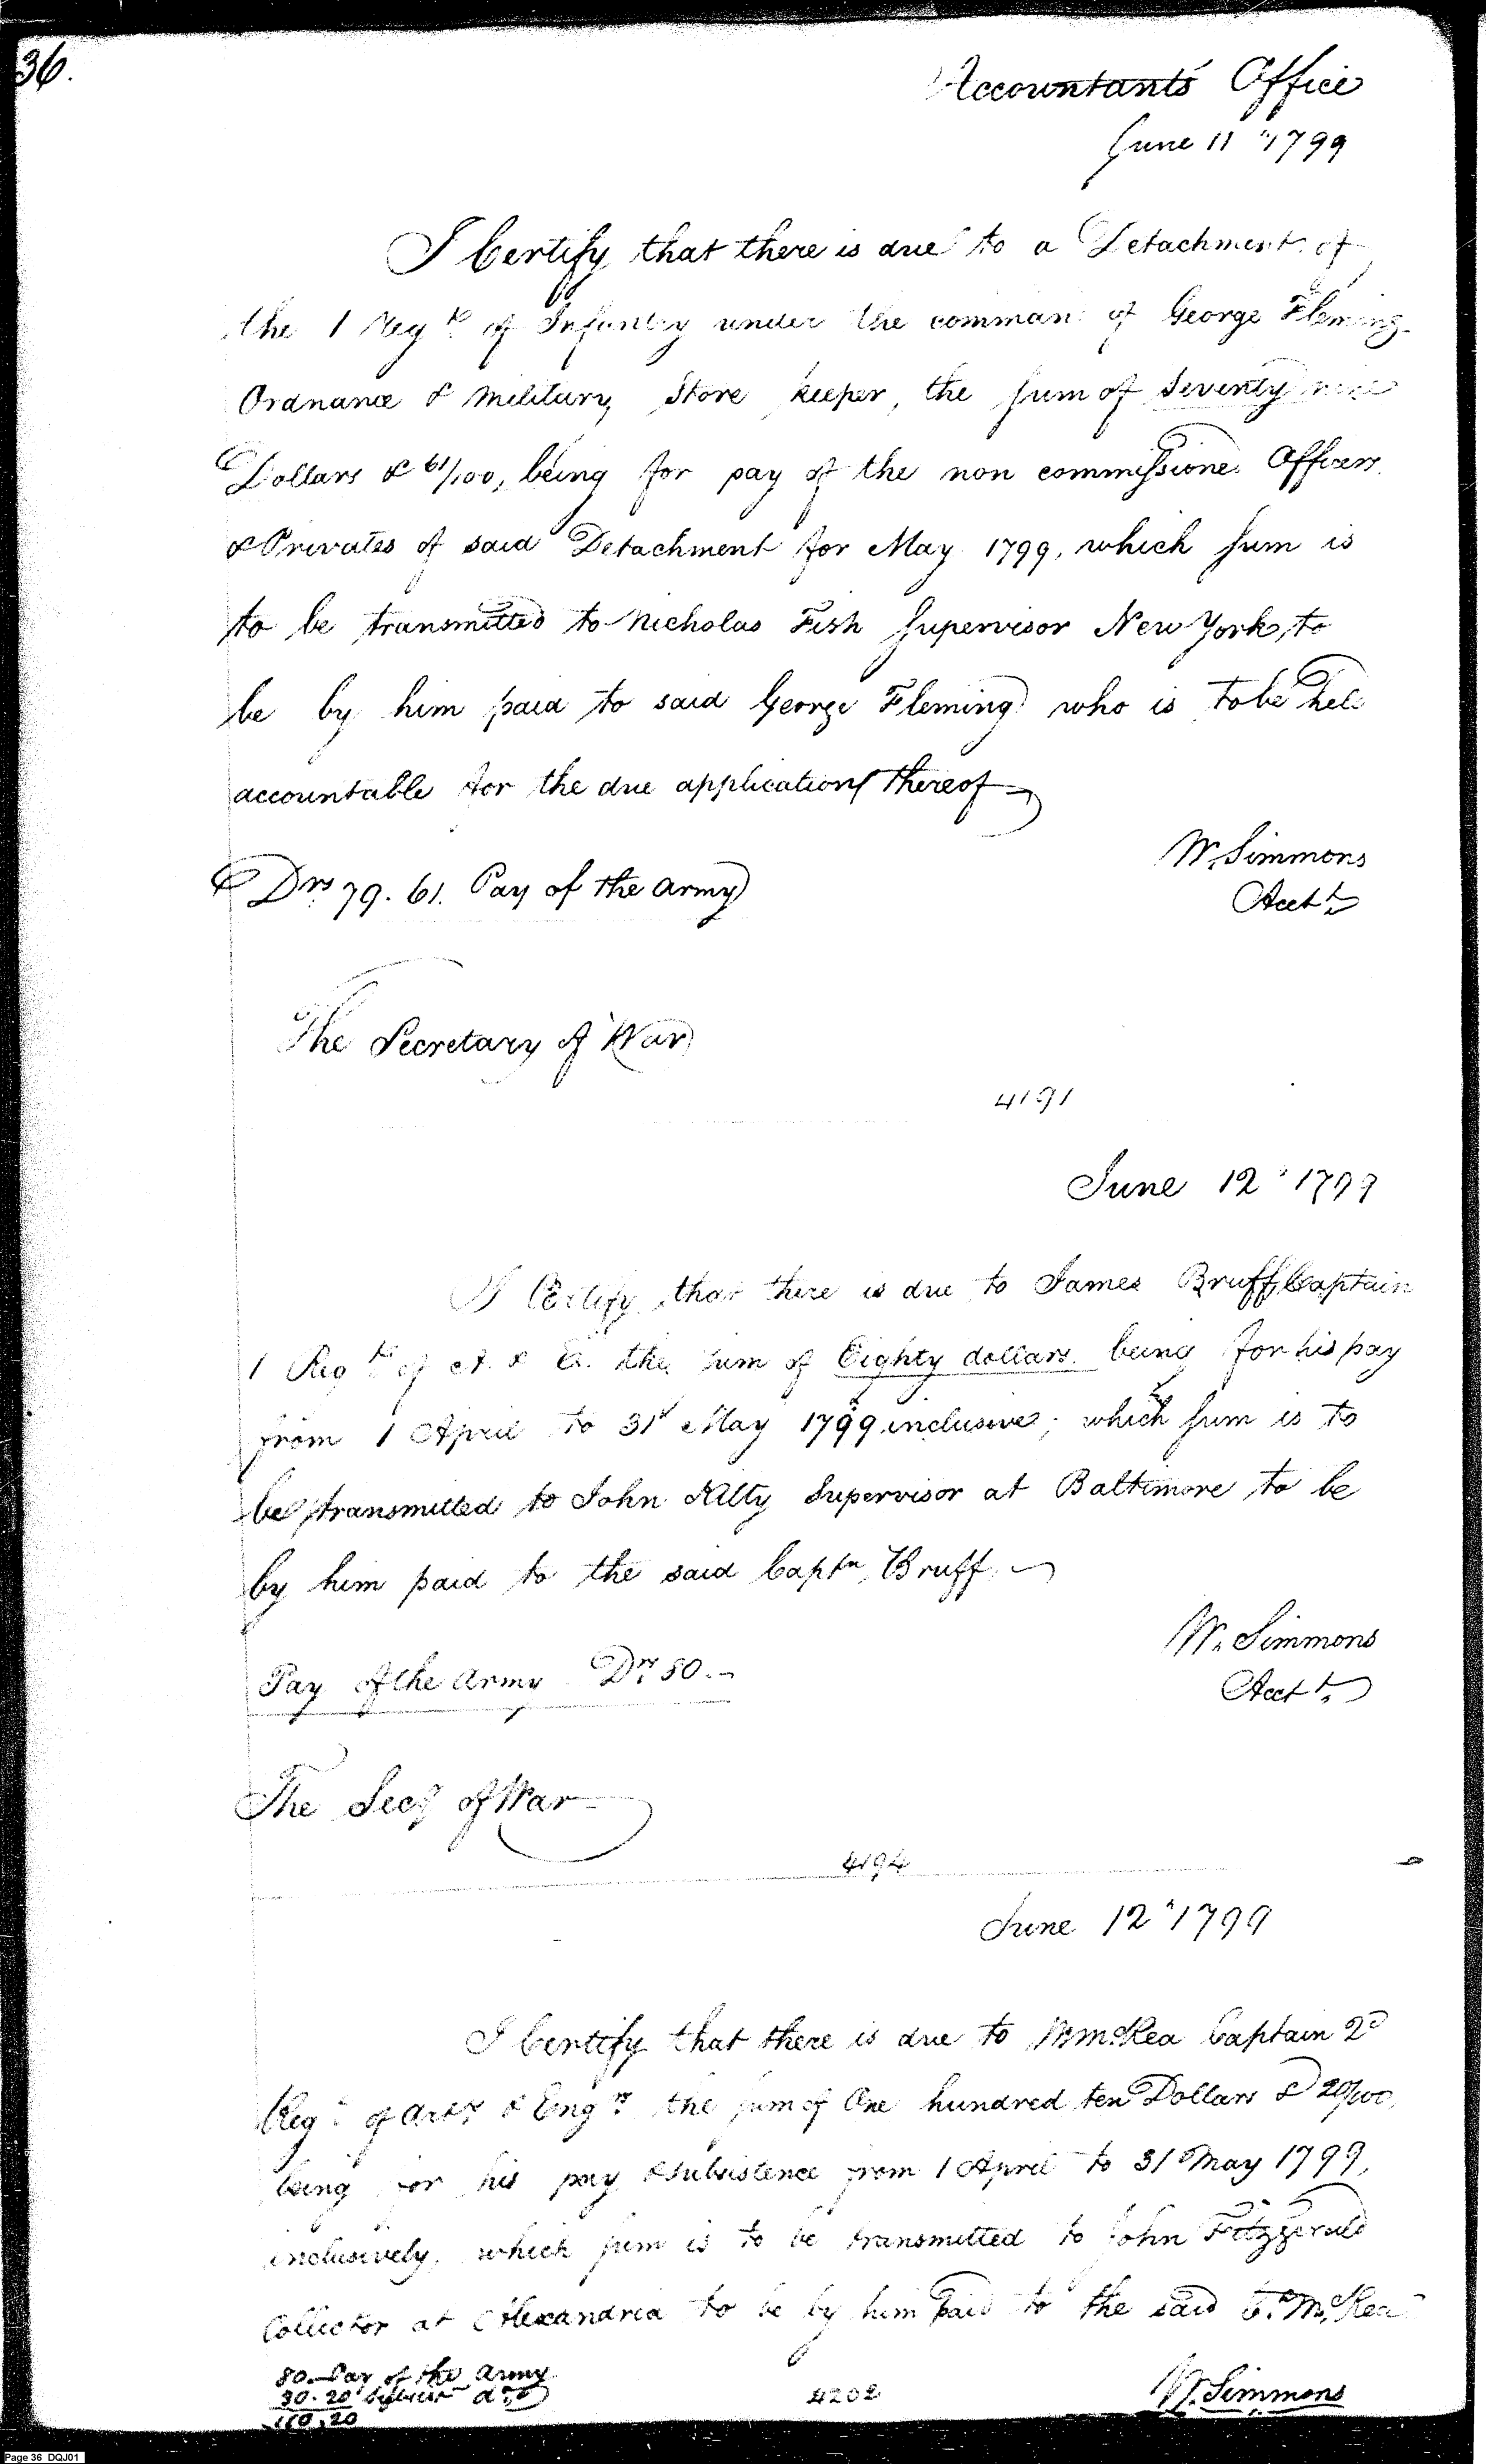 36.
Accountants Office
June 11th 1799
I Certify that there is due to a Detachment of
the 1 Regt of Infantry under the comman of George Fleming
Ordnance & Military Store keeper, the sum of Seventy nine
Dollars & 61/100, being for pay of the non commissioned Officers
& Privates of said Detachment for May 1799, which sum is
to be transmitted to Nicholas Fish Supervisor New York, to
be by him paid to said George Fleming who is to be held
accountable for the due application thereof
W. Simmons
Acctt
Drs 79. 61. Pay of the Army
The Secretary of War
4191
June 12th 1799
I Certify that there is due to James Bruff, Captain
1 Regt of A. & E. the sum of Eighty dollars being for his pay
from 1 April to 31st May 1799 inclusive; which sum is to
be transmitted to John Kilty Supervisor at Baltimore to be
by him paid to the said Captn Bruff.
W. Simmons
Acctt
Pay of the Army Drs 80.-
The Secy of War
4194
June 12th 1799
I Certify that there is due to McRea Captain 2d
Regt of Arty & Engrs the sum of One hundred ten Dollars & 20/100,
being for his pay & subsistence from 1 April to 31 May 1799,
inclusively, which sum is to be transmitted to John Fitzgerald
Collector at Alexandria to be by him paid to the said McRea
80. Pay of the Army
30. 20 Subsist do
110.20
4202
W. Simmons
Page 36 DQJ01